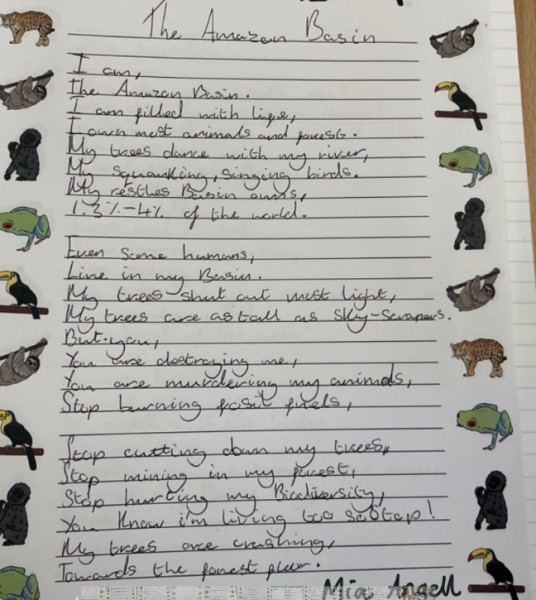 The Amazon Basin
I am,
The Amazon Basin.
I am filled with life,
I own most animals and forests.
My trees dance with my river,
My squawking, singing birds.
My restles Basin owns,
1.3%-4% of the world.
Even some humans,
Live in my Basin.
My trees shut out most light,
My trees are as tall as Sky-Scrapers.
But you,
You are destroying me,
You are murdering my animals,
Stop burning fosil fuels,
Stop cutting down my trees,
Stop mining in my forest,
Stop hurting my Biodiversity,
You Know i'm living too so Stop!
My trees are crashing,
Towards the forest floor.
Mia Angell